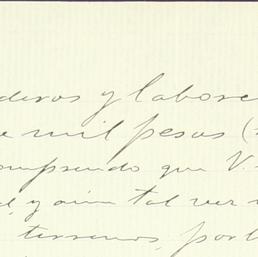 deros y labore
e mil pesos (
omprendo que V.
d, y aún tal vez
terrenos, por